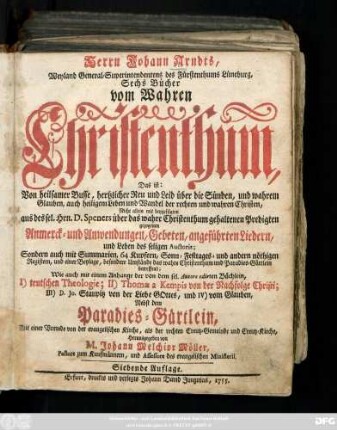 Herrn Johann Arndts,
Weyland General-Superintendentens des Fürstenthums Lüneburg,
Sechs Bücher
vom Wahren
Christenthum,
Das ist:
Von heilsamer Busse, hertzlicher Reu und Leid über die Sünden, und wahrem
Glauben, auch heiligem Leben und Wandel der rechten und wahren Christen,
aus des sel. Hrn. D. Speners über das wahre Christenthum gehaltenen Predigten
gezogenen
Anmerck- und Anwendungen, Gebeten, angeführten Liedern,
und Leben des seligen Auctoris;
Sondern auch mit Summarien, 64 Kupfern, Sonn- Festtages- und andern nöthigen
Registern, und einer Beylage, besondere Umstände des wahren Christenthum und Paradies-Gärtlein
betreffend;
Wie auch mit einem Anhange der von dem sel. Autore edirten Büchlein,
I) teutschen Theologie; II) Thomæ a Kempis von der Nachfolge Christi;
III) D. Jo. Staupitz von der Liebe GOttes, und IV) vom Glauben,
Nebst dem
Paradies-Gärtlein,
Mit einer Vorrede von der evangelischen Kirche, als der rechten Creutz-Gemeinde und Creutz-Kirche,
Herausgegeben von
M. Johann Melchior Möller,
Pastore zum Kaufmännern, und Assessore des evangelischen Ministerii.
Siebende Auflage.
Erfurt, druckts und verlegts Johann David Jungnicol,